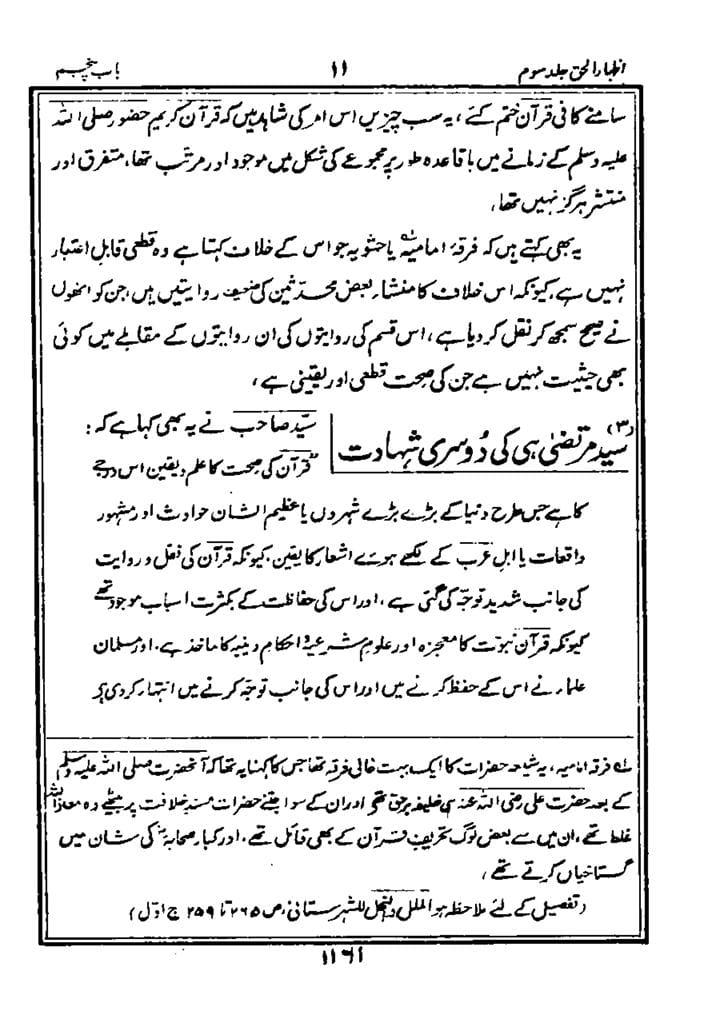 اظہار الحق جلد سوم ۱۱ باب پنجم
سامنے کافی قرآن ختم کئے، یہ سب چیزیں اس امر کی شاہد ہیں کہ قرآن کریم حضور صلی اللہ
علیہ وسلم کے زمانے میں باقاعدہ طور پر مجموعے کی شکل میں موجود اور مرتب تھا، متفرق اور
منتشر ہرگز نہیں تھا،
یہ بھی کہتے ہیں کہ فرقۂ امامیہ یا حشویہ جو اس کے خلاف کہتا ہے وہ قطعی قابلِ اعتبار
نہیں ہے، کیونکہ اس خلاف کا منشاء بعض محدثین کی ضعیف روایتیں ہیں، جن کو انھوں
نے صحیح سمجھ کر نقل کر دیا ہے، اس قسم کی روایتوں کی ان روایتوں کے مقابلے میں کوئی
بھی حیثیت نہیں ہے جن کی صحت قطعی اور یقینی ہے،
(۳) سید مرتضیٰ ہی کی دوسری شہادت
سیّد صاحب نے یہ بھی کہا ہے کہ:
"قرآن کی صحت کا علم و یقین اس درجے
کا ہے جس طرح دنیا کے بڑے بڑے شہروں یا عظیم الشان حوادث اور مشہور
واقعات یا اہلِ عرب کے لکھے ہوئے اشعار کا یقین، کیونکہ قرآن کی نقل و روایت
کی جانب شدید توجہ کی گئی ہے، اور اس کی حفاظت کے بکثرت اسباب موجود تھے
کیونکہ قرآن نبوت کا معجزہ اور علوم شرعیہ و احکام دینیہ کا ماخذ ہے، اور مسلمان
علماء نے اس کے حفظ کرنے میں اور اس کی جانب توجہ کرنے میں انتہا کر دی؟
لہ فرقہ امامیہ، یہ شیعہ حضرات کا ایک بہت غالی فرقہ تھا جس کا کہنا یہ تھا کہ آنحضرت صلی اللہ علیہ وسلم
کے بعد حضرت علی رضی اللہ عنہ ہی خلیفہ برحق تھے اور ان کے سوا جتنے حضرات مسندِ خلافت پر بیٹھے وہ معاذ اللہ
غلط تھے، ان میں سے بعض لوگ تحریفِ قرآن کے بھی قائل تھے، اور کبار صحابہؓ کی شان میں
گستاخیاں کرتے تھے،
(تفصیل کے لئے ملاحظہ ہو الملل والنحل للشہرستانی، ص ۲۶۵ تا ۲۵۹ ج اوّل)
۱۱۶۱